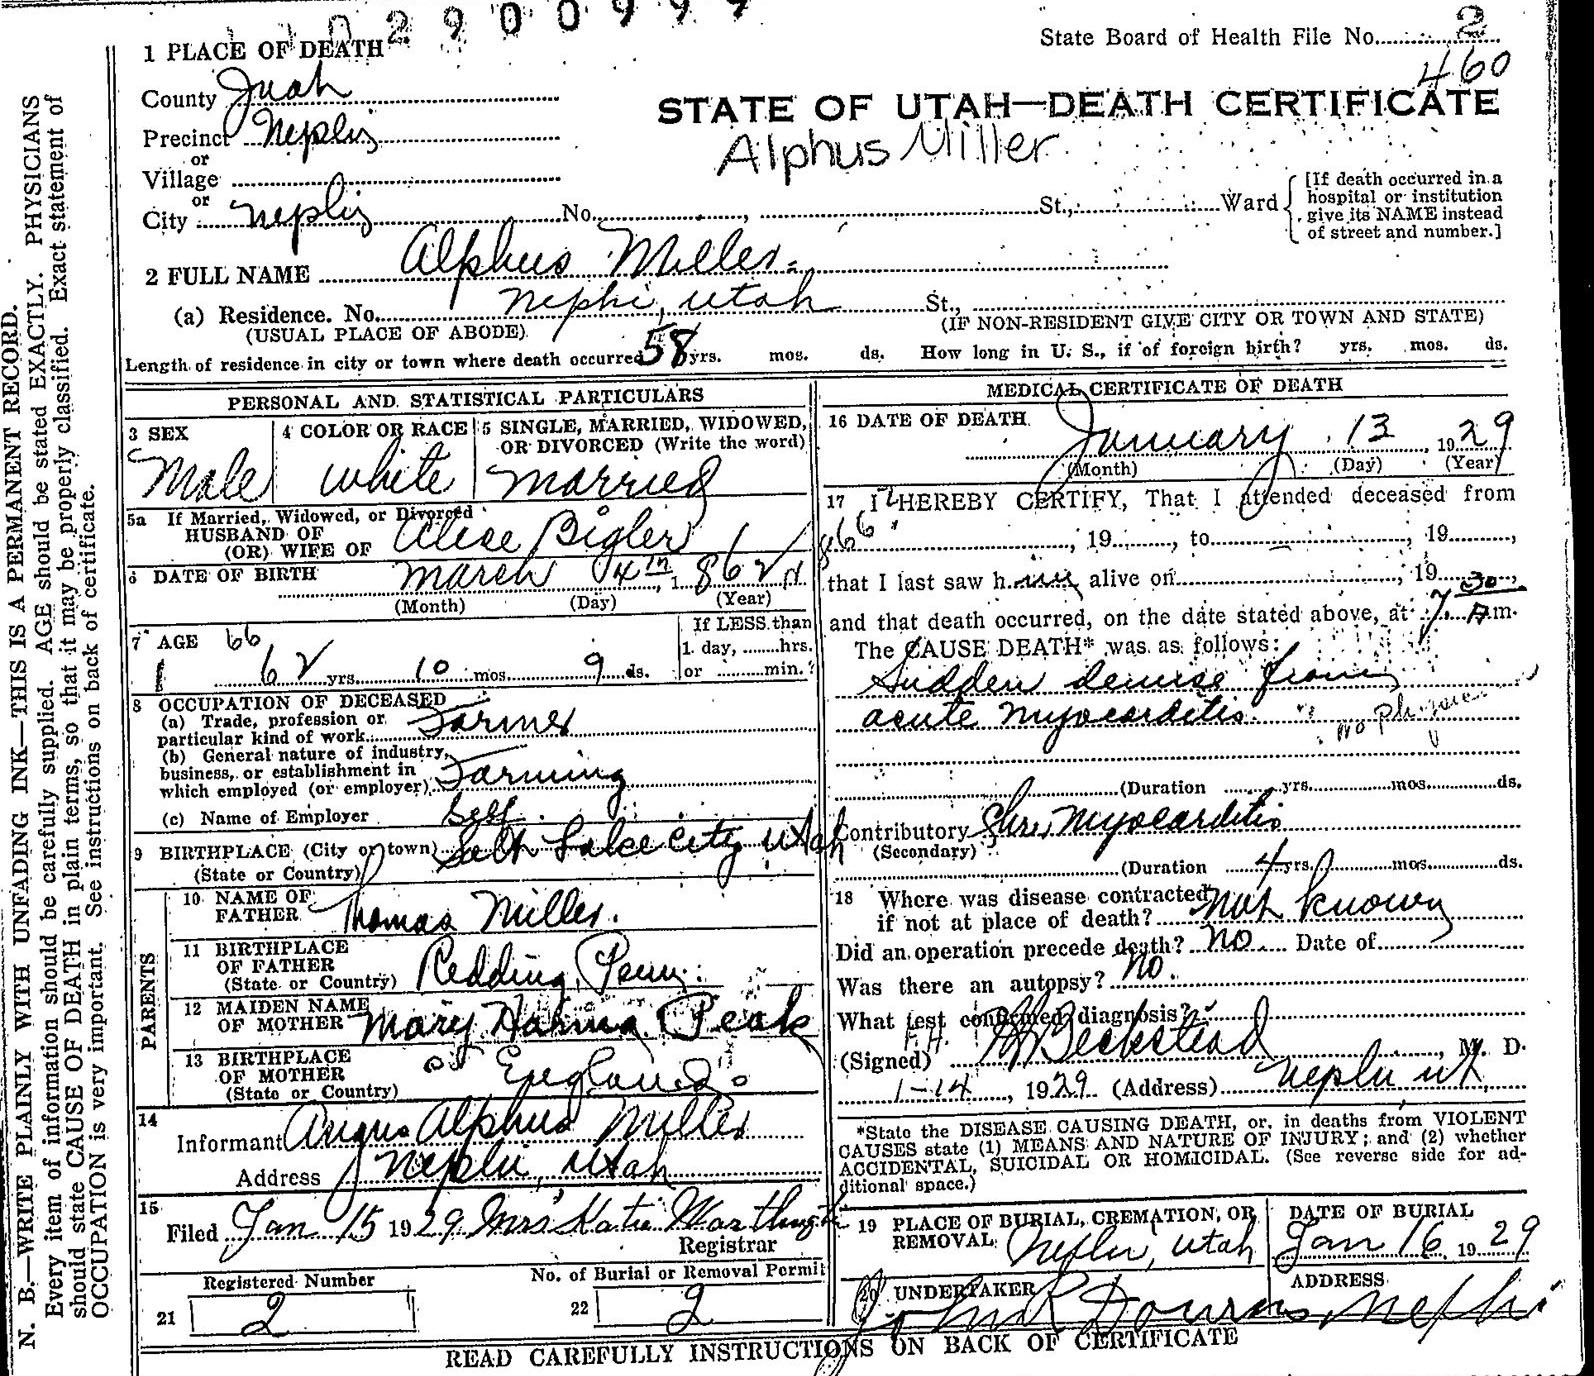 2900999
1 PLACE OF DEATH
State Board of Health File No. 2
460
County Juab
STATE OF UTAH—DEATH CERTIFICATE
Precinct Nephi
Alphus Miller
or
Village
or
City Nephi No. St., Ward
[If death occurred in a
hospital or institution
give its NAME instead
of street and number.]
2 FULL NAME Alphus Miller
(a) Residence. No. Nephi, Utah St.,
(USUAL PLACE OF ABODE) (IF NON-RESIDENT GIVE CITY OR TOWN AND STATE)
Length of residence in city or town where death occurred 58 yrs. mos. ds. How long in U. S., if of foreign birth? yrs. mos. ds.
PERSONAL AND STATISTICAL PARTICULARS
3 SEX
Male
4 COLOR OR RACE
White
5 SINGLE, MARRIED, WIDOWED,
OR DIVORCED (Write the word)
Married
5a If Married, Widowed, or Divorced
HUSBAND OF
(OR) WIFE OF Alice Bigler
6 DATE OF BIRTH March 4th, 1862
(Month) (Day) (Year)
7 AGE 66
62 yrs. 10 mos. 9 ds.
If LESS than
1 day, hrs.
or min.?
8 OCCUPATION OF DECEASED
(a) Trade, profession or
particular kind of work Farmer
(b) General nature of industry,
business, or establishment in
which employed (or employer) Farming
(c) Name of Employer Self
9 BIRTHPLACE (City or town) Salt Lake City Utah
(State or Country)
PARENTS
10 NAME OF
FATHER Thomas Miller.
11 BIRTHPLACE
OF FATHER
(State or Country) Redding, Penn.
12 MAIDEN NAME
OF MOTHER Mary Peak
13 BIRTHPLACE
OF MOTHER England
(State or Country)
14
Informant Angus Alphus Miller
Address Nephi, Utah
15
Filed Jan 15 1929 Mrs Katie
Registrar
Registered Number
21 2
No. of Burial or Removal Permit
22 2
MEDICAL CERTIFICATE OF DEATH
16 DATE OF DEATH
January 13, 1929
(Month) (Day) (Year)
17 I HEREBY CERTIFY, That I attended deceased from
, 19 , to , 19 ,
that I last saw h him alive on , 19 ,
and that death occurred, on the date stated above, at 7 30 A.m.
The CAUSE DEATH* was as follows:
Sudden demise from
acute myocarditis.
(Duration yrs. mos. ds.
Contributory Chro. Myocarditis
(Secondary)
(Duration 4 yrs. mos. ds.
18 Where was disease contracted
if not at place of death? Not known
Did an operation precede death? No Date of
Was there an autopsy? No.
What test confirmed diagnosis?
(Signed) Beckstead, M. D.
1-14, 1929 (Address) Nephi Ut.
*State the DISEASE CAUSING DEATH, or, in deaths from VIOLENT
CAUSES state (1) MEANS AND NATURE OF INJURY; and (2) whether
ACCIDENTAL, SUICIDAL OR HOMICIDAL. (See reverse side for ad-
ditional space.)
19 PLACE OF BURIAL, CREMATION, OR
REMOVAL Nephi, Utah
DATE OF BURIAL
Jan 16, 1929
20 UNDERTAKER ADDRESS
Nephi
READ CAREFULLY INSTRUCTIONS ON BACK OF CERTIFICATE
N. B.—WRITE PLAINLY WITH UNFADING INK—THIS IS A PERMANENT RECORD.
Every item of information should be carefully supplied. AGE should be stated EXACTLY. PHYSICIANS
should state CAUSE OF DEATH in plain terms, so that it may be properly classified. Exact statement of
OCCUPATION is very important. See instructions on back of certificate.